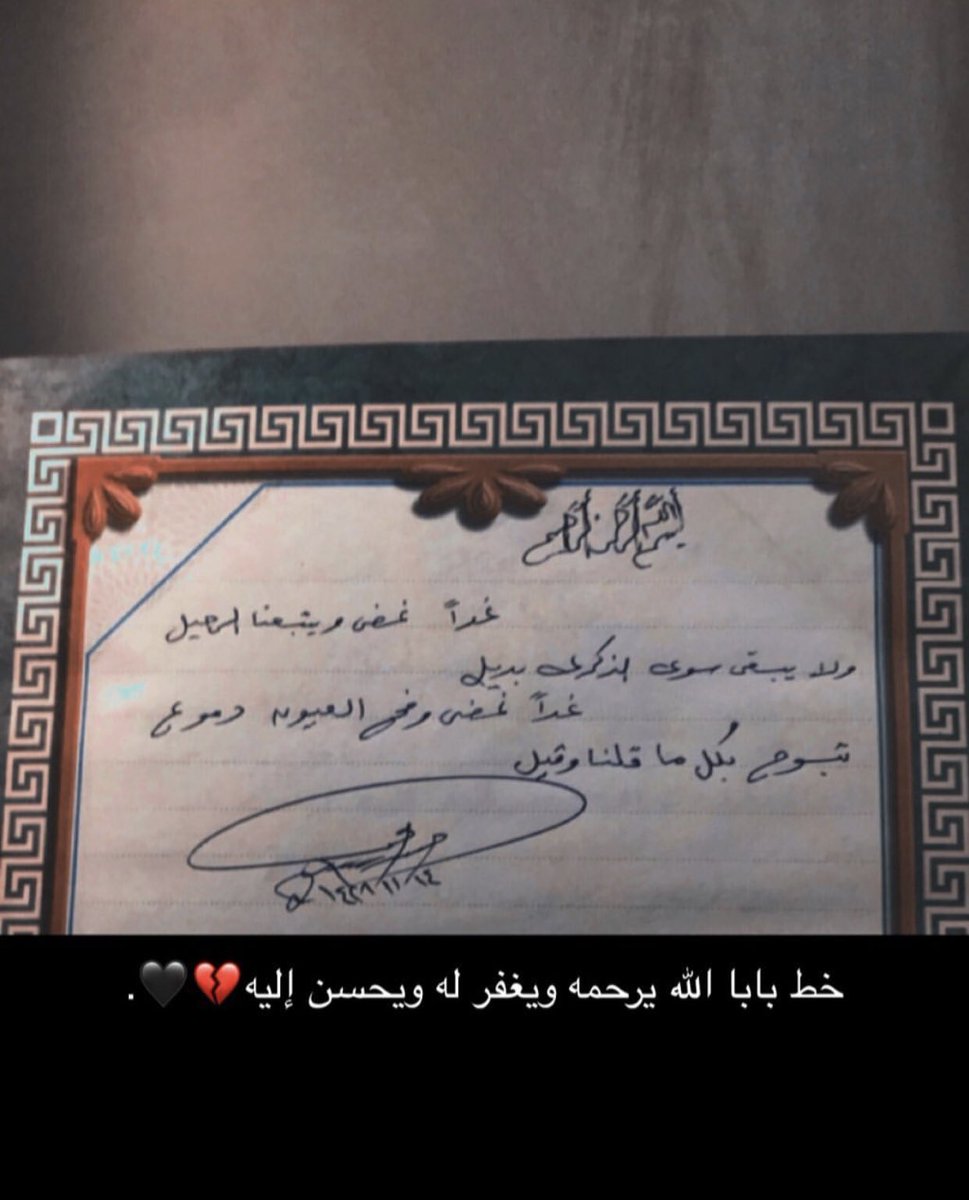 بسم الله الرحمن الرحيم
غداً نمضي ويتبعنا الرحيل
ولا يبقى سوى الذكرى بديل
غداً نمضي وفي العيون دموع
تبوح بكل ما قلنا وقيل
١٤٢٨/١١/١٤هـ
خط بابا الله يرحمه ويغفر له ويحسن إليه💔🖤.